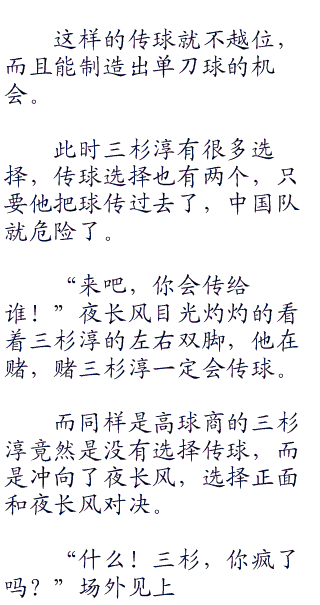 这样的传球就不越位，
而且能制造出单刀球的机
会。
此时三杉淳有很多选
择，传球选择也有两个，只
要他把球传过去了，中国队
就危险了。
“来吧，你会传给
谁！”夜长风目光灼灼的看
着三杉淳的左右双脚，他在
赌，赌三杉淳一定会传球。
而同样是高球商的三杉
淳竟然是没有选择传球，而
是冲向了夜长风，选择正面
和夜长风对决。
“什么！三杉，你疯了
吗？”场外见上